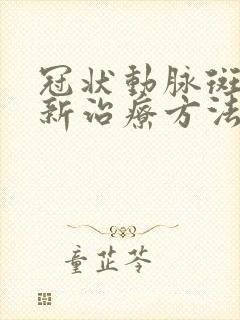 冠状動脉斑
新治療方法
童芷苓